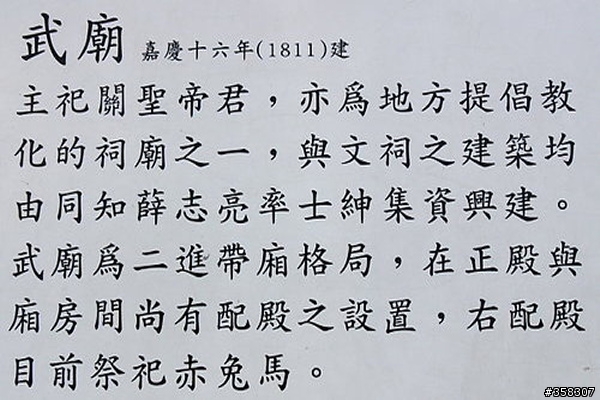 武廟 嘉慶十六年(1811)建
主祀關聖帝君，亦為地方提倡教
化的祠廟之一，與文祠之建築均
由同知薛志亮率士紳集資興建。
武廟為二進帶廂格局，在正殿與
廂房間尚有配殿之設置，右配殿
目前祭祀赤兔馬。
#358307